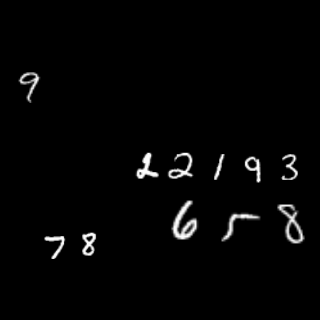 9
22193
658
78